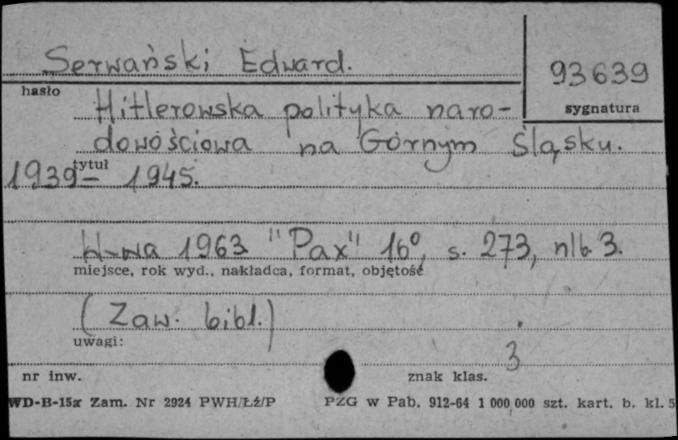 Serwański Edward.
93639
hasło
sygnatura
Hitlerowska polityka naro-
dowościowa na Górnym Śląsku.
tytuł
1939 - 1945.
W-wa 1963 "Pax" 16°, s. 273, nlb 3.
miejsce, rok wyd., nakładca, format, objętość
(Zaw. bibl.)
uwagi:
3
nr inw.
znak klas.
WD-B-15x Zam. Nr 2924 PWH/Łź/P
PZG w Pab. 912-64 1 000 000 szt. kart. b. kl. 5